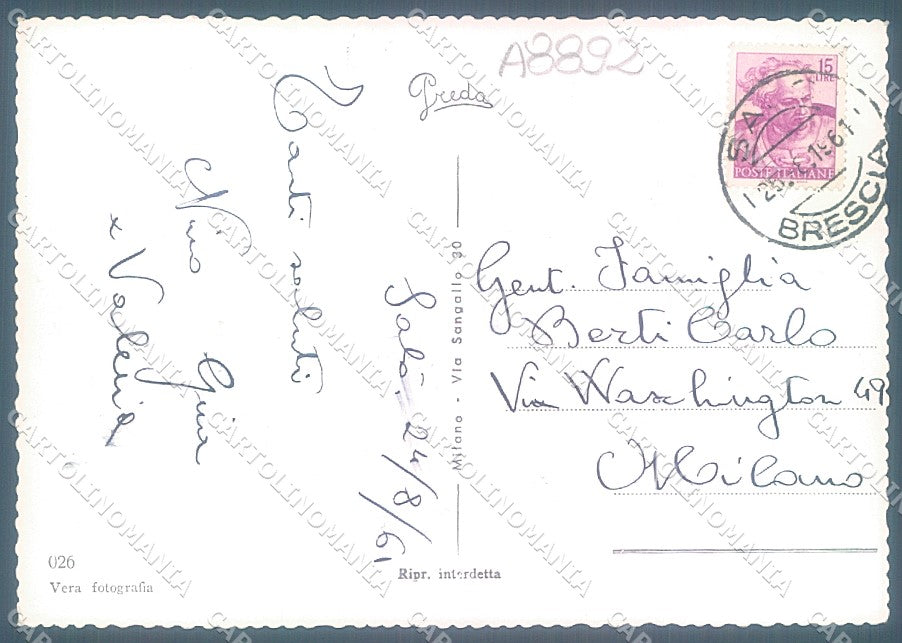 A8892
Greda
15
LIRE
POSTE ITALIANE
SA
25.8.1961
BRESCIA
Salò. 24/8/61
Tanti saluti
Nino Gina
x Valeria
Gent. Famiglia
Berti Carlo
Via Waschington 49
Milano
Milano - Via Sangallo 30
Ripr. interdetta
026
Vera fotografia
CARTOLINOMANIA